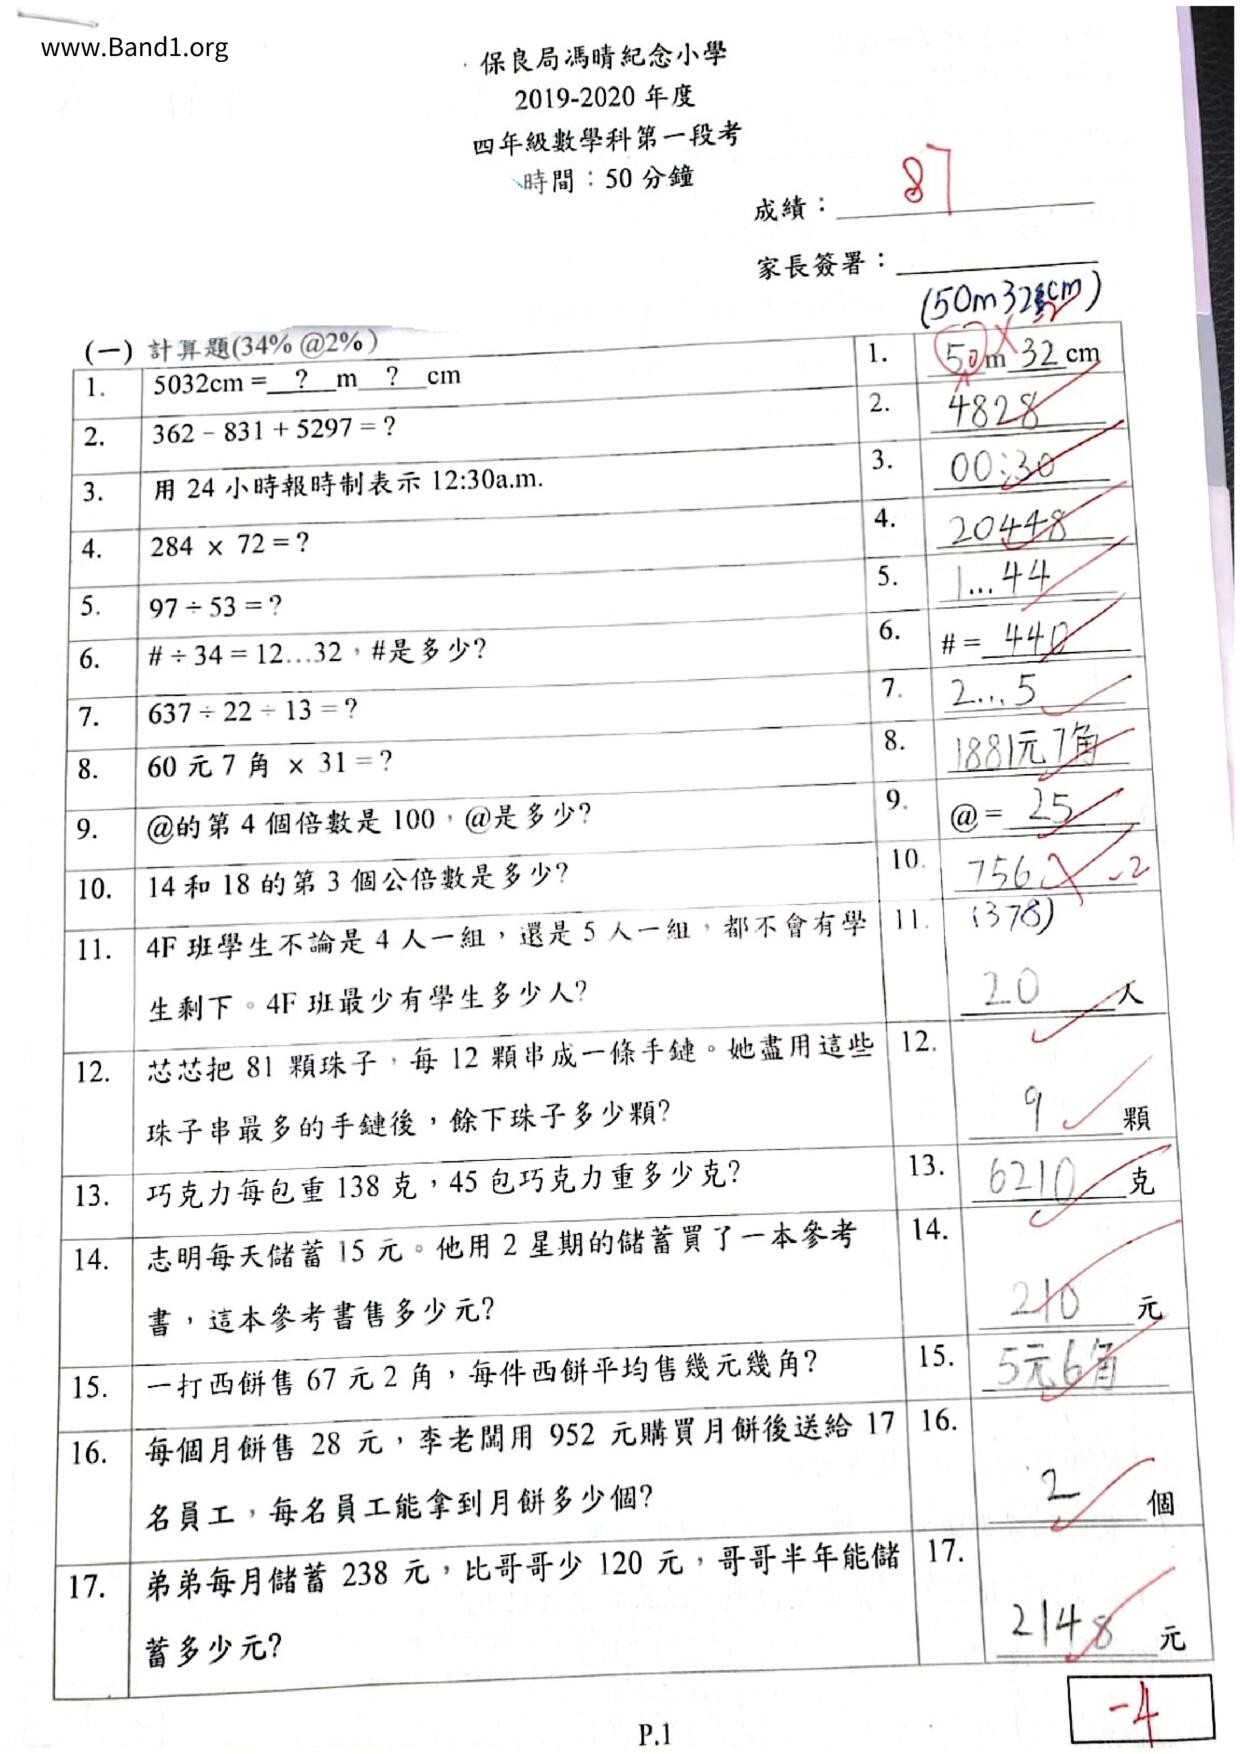 www.Band1.org
保良局馮晴紀念小學
2019-2020 年度
四年級數學科第一段考
時間：50 分鐘
成績： 87
家長簽署：
(50m32cm)
(一) 計算題(34% @2%)
1. 5032cm = ? m ? cm 1. 50 m 32 cm
2. 362 – 831 + 5297 = ? 2. 4828
3. 用 24 小時報時制表示 12:30a.m. 3. 00:30
4. 284 × 72 = ? 4. 20448
5. 97 ÷ 53 = ? 5. 1...44
6. # ÷ 34 = 12...32，#是多少? 6. # = 440
7. 637 ÷ 22 ÷ 13 = ? 7. 2...5
8. 60 元 7 角 × 31 = ? 8. 1881元7角
9. @的第 4 個倍數是 100，@是多少? 9. @ = 25
10. 14 和 18 的第 3 個公倍數是多少? 10. 756 -2
(378)
11. 4F 班學生不論是 4 人一組，還是 5 人一組，都不會有學 11.
生剩下。4F 班最少有學生多少人? 20 人
12. 芯芯把 81 顆珠子，每 12 顆串成一條手鏈。她盡用這些 12.
珠子串最多的手鏈後，餘下珠子多少顆? 9 顆
13. 巧克力每包重 138 克，45 包巧克力重多少克? 13. 6210 克
14. 志明每天儲蓄 15 元。他用 2 星期的儲蓄買了一本參考 14.
書，這本參考書售多少元? 210 元
15. 一打西餅售 67 元 2 角，每件西餅平均售幾元幾角? 15. 5元6角
16. 每個月餅售 28 元，李老闆用 952 元購買月餅後送給 17 16.
名員工，每名員工能拿到月餅多少個? 2 個
17. 弟弟每月儲蓄 238 元，比哥哥少 120 元，哥哥半年能儲 17.
蓄多少元? 2148 元
-4
P.1